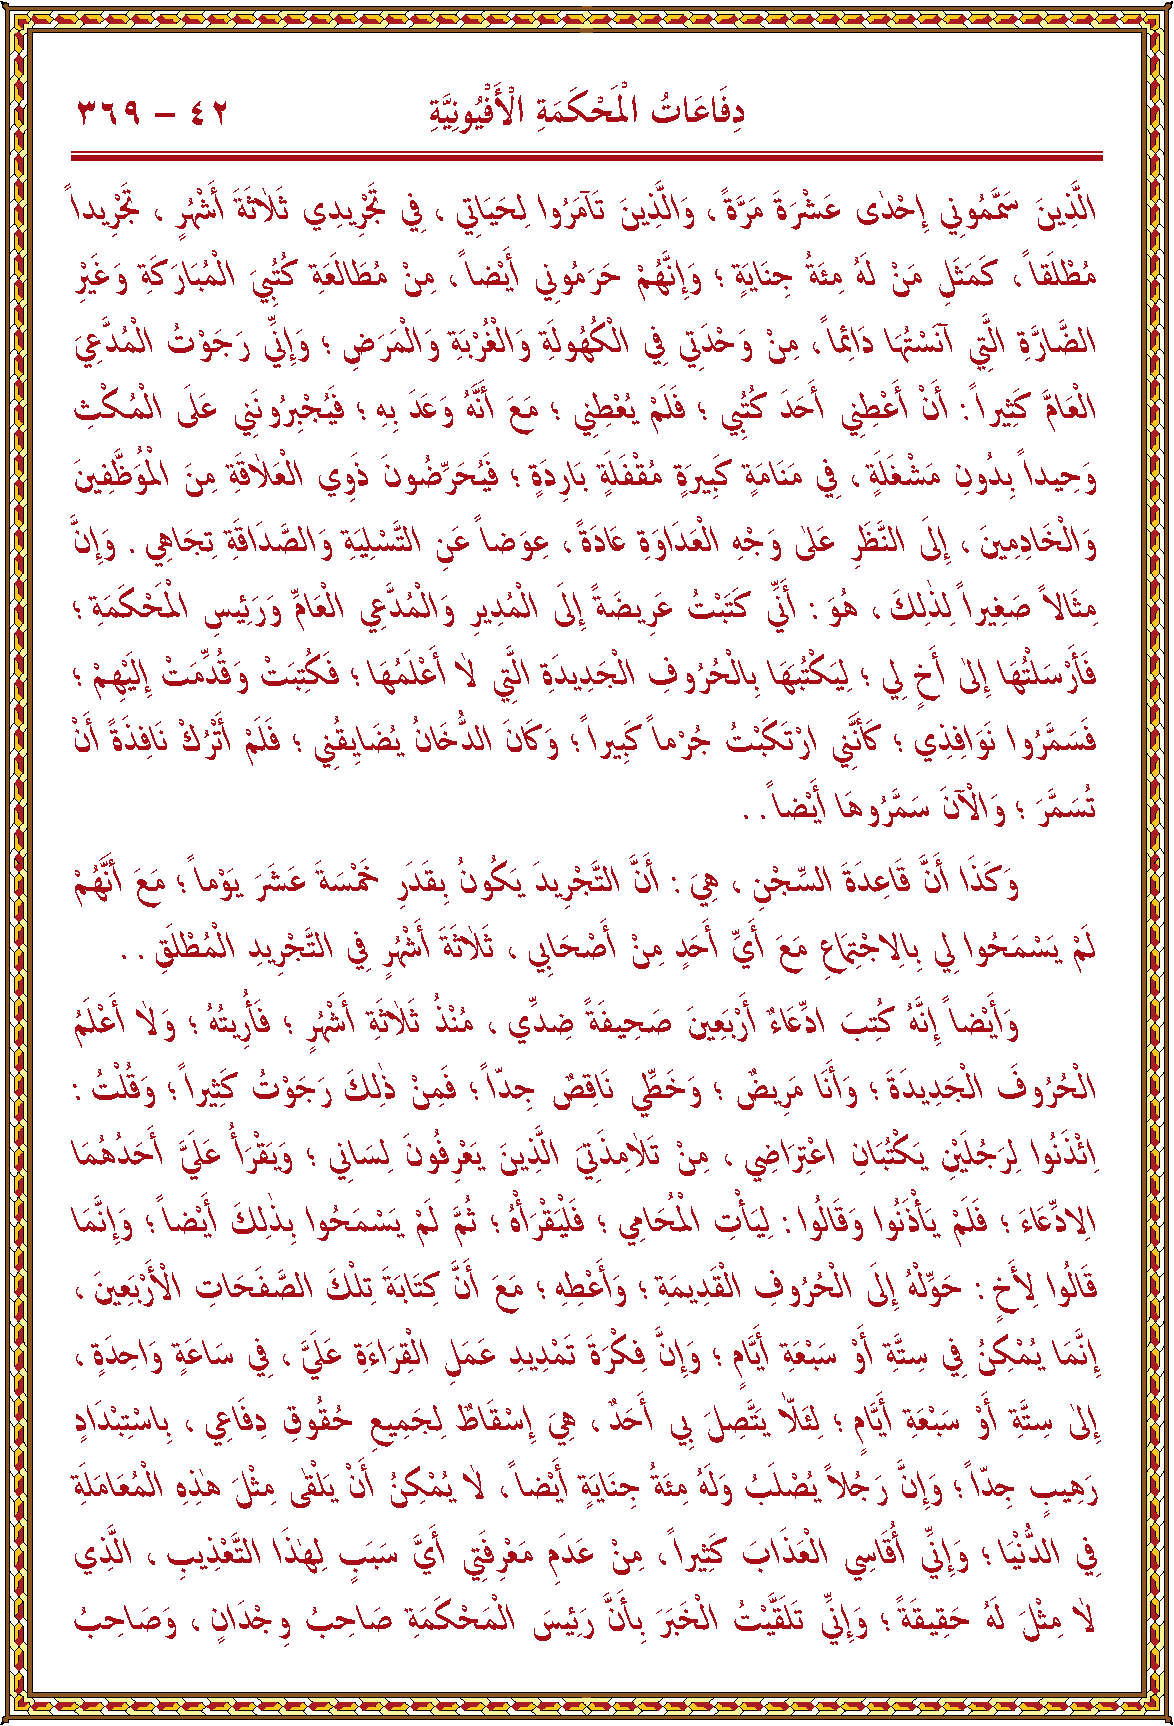 دِفَاعَاتُ الْمَحْكَمَةِ الْأَفْيُونِيَّةِ ٤٢ – ٣٦٩
الَّذِينَ سَمَّمُونِي إِحْدٰى عَشْرَةَ مَرَّةً ، وَالَّذِينَ تَآمَرُوا لِحَيَاتِي ، فِي تَجْرِيدِي ثَلَاثَةَ أَشْهُرٍ ، تَجْرِيداً
مُطْلَقاً ، كَمَثَلِ مَنْ لَهُ مِئَةُ جِنَايَةٍ ؛ وَإِنَّهُمْ حَرَمُونِي أَيْضاً ، مِنْ مُطَالَعَةِ كُتُبِيَ الْمُبَارَكَةِ وَغَيْرِ
الضَّارَّةِ الَّتِي آنَسْتُهَا دَائِماً ، مِنْ وَحْدَتِي فِي الْكُهُولَةِ وَالْغُرْبَةِ وَالْمَرَضِ ؛ وَإِنِّي رَجَوْتُ الْمُدَّعِيَ
الْعَامَّ كَثِيراً : أَنْ أَعْطِنِي أَحَدَ كُتُبِي ؛ فَلَمْ يُعْطِنِي ؛ مَعَ أَنَّهُ وَعَدَ بِهِ ؛ فَيُجْبِرُونَنِي عَلَى الْمُكْثِ
وَحِيداً بِدُونِ مَشْغَلَةٍ ، فِي مَنَامَةٍ كَبِيرَةٍ مُقْفَلَةٍ بَارِدَةٍ ؛ فَيُحَرِّضُونَ ذَوِي الْعَلَاقَةِ مِنَ الْمُوَظَّفِينَ
وَالْخَادِمِينَ ، إِلَى النَّظَرِ عَلٰى وَجْهِ الْعَدَاوَةِ عَادَةً ، عِوَضاً عَنِ التَّسْلِيَةِ وَالصَّدَاقَةِ تِجَاهِي . وَإِنَّ
مِثَالاً صَغِيراً لِذٰلِكَ ، هُوَ : أَنِّي كَتَبْتُ عَرِيضَةً إِلَى الْمُدِيرِ وَالْمُدَّعِي الْعَامِّ وَرَئِيسِ الْمَحْكَمَةِ ؛
فَأَرْسَلْتُهَا إِلٰى أَخٍ لِي ؛ لِيَكْتُبَهَا بِالْحُرُوفِ الْجَدِيدَةِ الَّتِي لَا أَعْلَمُهَا ؛ فَكُتِبَتْ وَقُدِّمَتْ إِلَيْهِمْ ؛
فَسَمَّرُوا نَوَافِذِي ؛ كَأَنَّنِي ارْتَكَبْتُ جُرْماً كَبِيراً ؛ وَكَانَ الدُّخَانُ يُضَايِقُنِي ؛ فَلَمْ أَتْرُكْ نَافِذَةً أَنْ
تُسَمَّرَ ؛ وَالْآنَ سَمَّرُوهَا أَيْضاً . .
وَكَذَا أَنَّ قَاعِدَةَ السِّجْنِ ، هِيَ : أَنَّ التَّجْرِيدَ يَكُونُ بِقَدَرِ خَمْسَةَ عَشَرَ يَوْماً ؛ مَعَ أَنَّهُمْ
لَمْ يَسْمَحُوا لِي بِالِاجْتِمَاعِ مَعَ أَيِّ أَحَدٍ مِنْ أَصْحَابِي ، ثَلَاثَةَ أَشْهُرٍ فِي التَّجْرِيدِ الْمُطْلَقِ . .
وَأَيْضاً إِنَّهُ كُتِبَ ادِّعَاءٌ أَرْبَعِينَ صَحِيفَةً ضِدِّي ، مُنْذُ ثَلَاثَةِ أَشْهُرٍ ؛ فَأُرِيتُهُ ؛ وَلَا أَعْلَمُ
الْحُرُوفَ الْجَدِيدَةَ ؛ وَأَنَا مَرِيضٌ ؛ وَخَطِّي نَاقِصٌ جِدّاً ؛ فَمِنْ ذٰلِكَ رَجَوْتُ كَثِيراً ؛ وَقُلْتُ :
اِئْذَنُوا لِرَجُلَيْنِ يَكْتُبَانِ اعْتِرَاضِي ، مِنْ تَلَامِذَتِيَ الَّذِينَ يَعْرِفُونَ لِسَانِي ؛ وَيَقْرَأُ عَلَيَّ أَحَدُهُمَا
الِادِّعَاءَ ؛ فَلَمْ يَأْذَنُوا وَقَالُوا : لِيَأْتِ الْمُحَامِي ؛ فَلْيَقْرَأْهُ ؛ ثُمَّ لَمْ يَسْمَحُوا بِذٰلِكَ أَيْضاً ؛ وَإِنَّمَا
قَالُوا لِأَخٍ : حَوِّلْهُ إِلَى الْحُرُوفِ الْقَدِيمَةِ ؛ وَأَعْطِهِ ؛ مَعَ أَنَّ كِتَابَةَ تِلْكَ الصَّفَحَاتِ الْأَرْبَعِينَ ،
إِنَّمَا يُمْكِنُ فِي سِتَّةِ أَوْ سَبْعَةِ أَيَّامٍ ؛ وَإِنَّ فِكْرَةَ تَمْدِيدِ عَمَلِ الْقِرَاءَةِ عَلَيَّ ، فِي سَاعَةٍ وَاحِدَةٍ ،
إِلٰى سِتَّةِ أَوْ سَبْعَةِ أَيَّامٍ ؛ لِئَلَّا يَتَّصِلَ بِي أَحَدٌ ، هِيَ إِسْقَاطٌ لِجَمِيعِ حُقُوقِ دِفَاعِي ، بِاسْتِبْدَادٍ
رَهِيبٍ جِدّاً ؛ وَإِنَّ رَجُلاً يُصْلَبُ وَلَهُ مِئَةُ جِنَايَةٍ أَيْضاً ، لَا يُمْكِنُ أَنْ يَلْقٰى مِثْلَ هٰذِهِ الْمُعَامَلَةِ
فِي الدُّنْيَا ؛ وَإِنِّي أُقَاسِي الْعَذَابَ كَثِيراً ، مِنْ عَدَمِ مَعْرِفَتِي أَيَّ سَبَبٍ لِهٰذَا التَّعْذِيبِ ، الَّذِي
لَا مِثْلَ لَهُ حَقِيقَةً ؛ وَإِنِّي تَلَقَّيْتُ الْخَبَرَ بِأَنَّ رَئِيسَ الْمَحْكَمَةِ صَاحِبُ وِجْدَانٍ ، وَصَاحِبُ